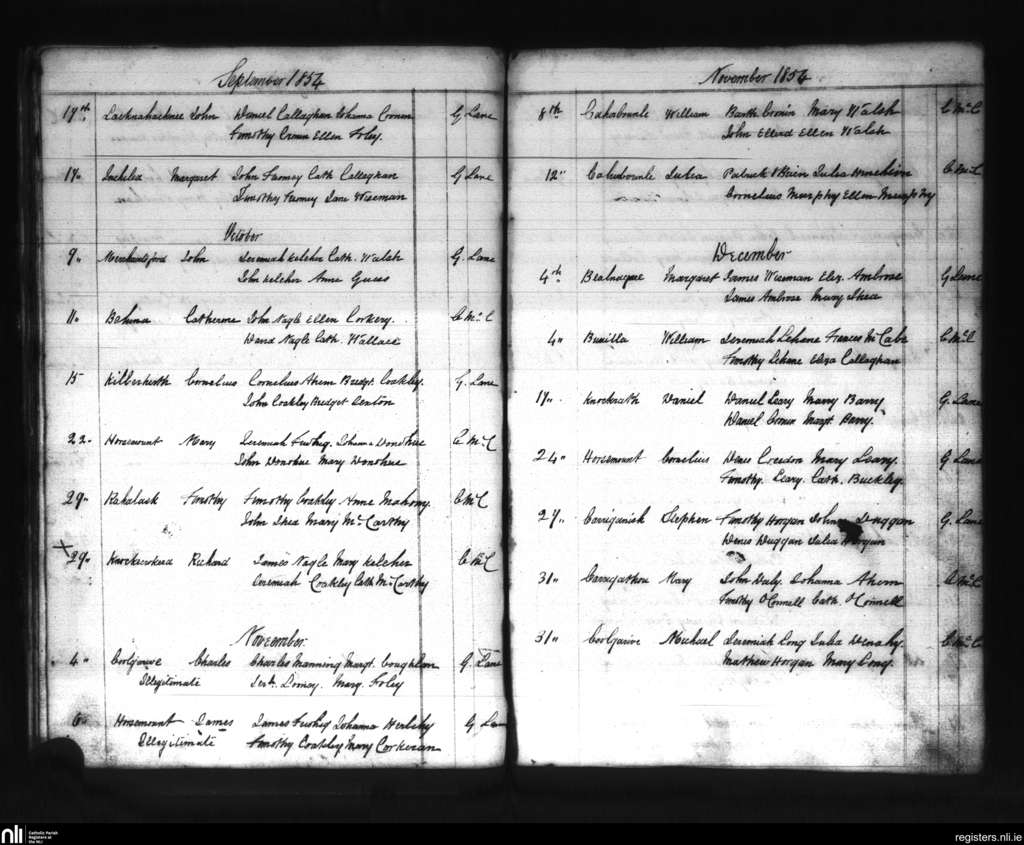 September 1854
17th Lacknahacknee John Daniel Callaghan Johanna Cronin G Lane
Timothy Cronin Ellen Foley.
17" Margaret John Twomey Cath Callaghan G Lane
Timothy Twomey Jane Wiseman
October
9" John Jeremiah Kelcher Cath. Walsh G. Lane
John Kelcher Anne
11" Catherine John Nagle Ellen Corkery. C McC
David Nagle Cath Wallace
15 Cornelius Cornelius Ahern Bridgt. Coakley. G. Lane
John Coakley Bridget
22" Horsemount Mary Jeremiah Johanna Donohue C McC
John Donohue Mary Donohue
29" Timothy Timothy Coakley Anne Mahony C McC
John Shea Mary McCarthy
x 29" Richard James Nagle Mary Kelcher C McC
Jeremiah Coakley Cath McCarthy
November
4" Charles Charles Manning Margt. Coughlan G. Lane
Illegitimate Mary Foley
6" Horsemount James James Johanna G Lane
Illegitimate Timothy Coakley Mary Corkeran
November 1854
8th William Barth Cronin Mary Walsh C McC
John Ellen Walsh
12" Julia Patrick OBrien Julia C McC
Cornelius Murphy Ellen Murphy
December
4th Margaret James Wiseman Eliz. Ambrose G Lane
James Ambrose Mary Shea
4" William Jeremiah Lehane Frances McCabe C McC
Timothy Lehane Eliza Callaghan
17" Knockrath Daniel Daniel Leary Mary Barry G. Lane
Daniel Cronin Margt. Barry.
24" Horsemount Cornelius Denis Creedon Mary Leary. G Lane
Timothy. Leary. Cath. Buckley.
27" Carriganish Stephen Timothy Horgan Duggan G. Lane
Denis Duggan Julia Horgan
31" Mary John Daly. Johanna Ahern C McC
Timothy O'Connell Cath. O'Connell
31" Michael Jeremiah Long Julia C McC
Mathew Horgan Mary Long.
nli
Catholic Parish
Registers at
the NLI
registers.nli.ie